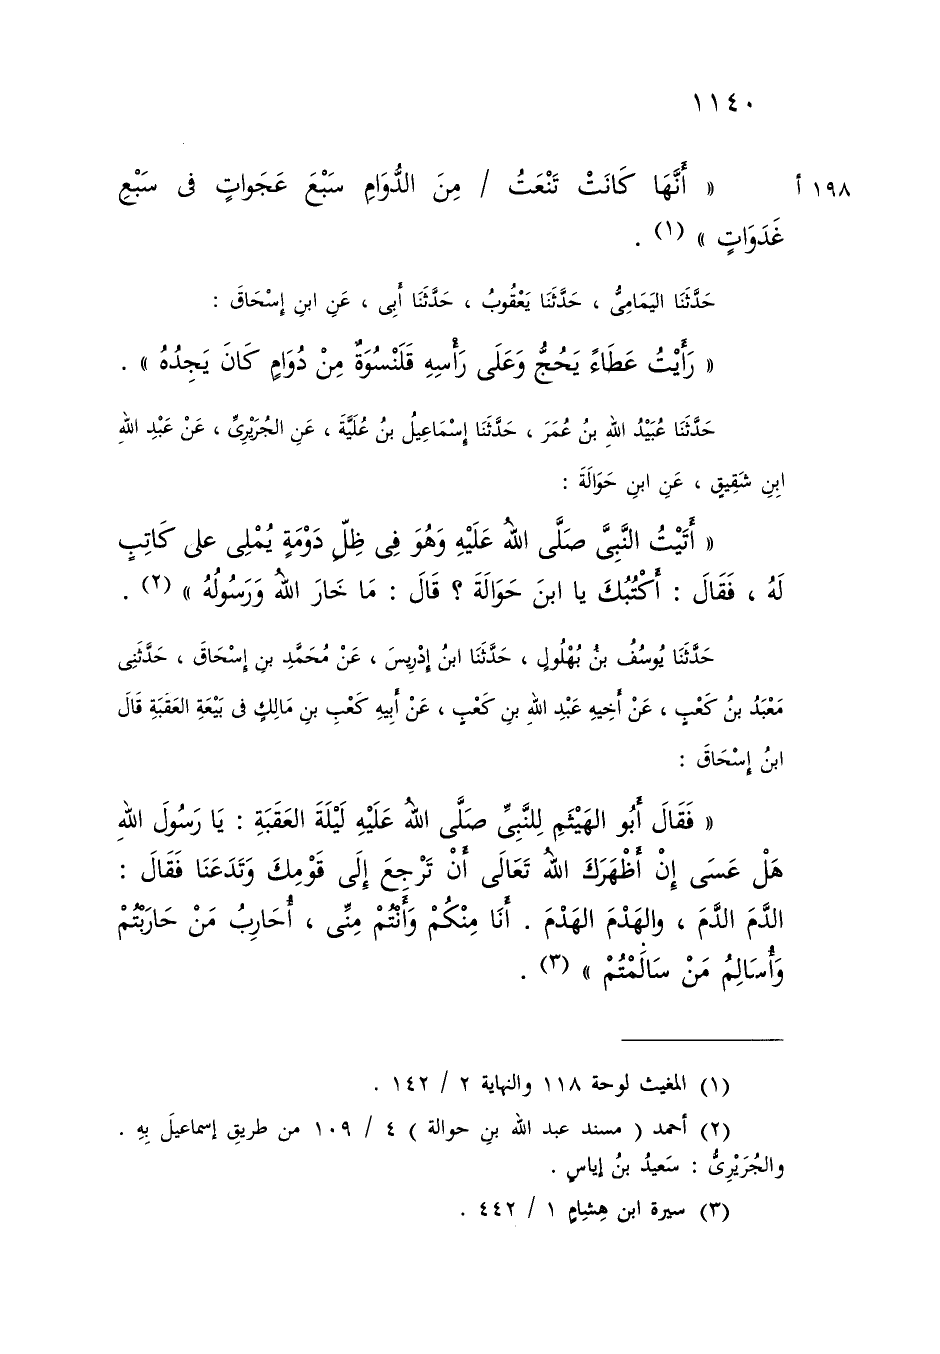 ١١٤٠
« أَنَّهَا كَانَتْ تَنْعَتُ / مِنَ الدُّوَامِ سَبْعَ عَجَواتٍ فى سَبْعِ ١٩٨ أ
غَدَوَاتٍ » (١) .
حَدَّثَنَا اليَمَامِىُّ ، حَدَّثَنَا يَعْقُوبُ ، حَدَّثَنَا أَبِى ، عَنِ ابنِ إِسْحَاقَ :
« رَأَيْتُ عَطَاءً يَحُجُّ وَعَلَى رَأْسِهِ قَلَنْسُوَةٌ مِنْ دُوَامٍ كَانَ يَجِدُهُ » .
حَدَّثَنَا عُبَيْدُ اللهِ بنُ عُمَرَ ، حَدَّثَنَا إِسْمَاعِيلُ بنُ عُلَيَّةَ ، عَنِ الجُرَيْرِىِّ ، عَنْ عَبْدِ اللهِ
ابنِ شَقِيقٍ ، عَنِ ابنِ حَوَالَةَ :
« أَتَيْتُ النَّبِىَّ صَلَّى اللهُ عَلَيْهِ وَهُوَ فِى ظِلِّ دَوْمَةٍ يُمْلِى على كَاتِبٍ
لَهُ ، فَقَالَ : أَكْتُبُكَ يا ابنَ حَوَالَةَ ؟ قَالَ : مَا خَارَ اللهُ وَرَسُولُهُ » (٢) .
حَدَّثَنَا يُوسُفُ بنُ بُهْلُولٍ ، حَدَّثَنَا ابنُ إِدْرِيسَ ، عَنْ مُحَمَّدِ بنِ إِسْحَاقَ ، حَدَّثَنِى
مَعْبَدُ بنُ كَعْبٍ ، عَنْ أَخِيهِ عَبْدِ اللهِ بنِ كَعْبٍ ، عَنْ أَبِيهِ كَعْبِ بنِ مَالِكٍ فى بَيْعَةِ العَقَبَةِ قَالَ
ابنُ إِسْحَاقَ :
« فَقَالَ أَبُو الهَيْثَمِ لِلنَّبِىِّ صَلَّى اللهُ عَلَيْهِ لَيْلَةَ العَقَبَةِ : يَا رَسُولَ اللهِ
هَلْ عَسَى إِنْ أَظْهَرَكَ اللهُ تَعَالَى أَنْ تَرْجِعَ إِلَى قَوْمِكَ وَتَدَعَنَا فَقَالَ :
الدَّمَ الدَّمَ ، والهَدْمَ الهَدْمَ . أَنَا مِنْكُمْ وَأَنْتُمْ مِنِّى ، أُحَارِبُ مَنْ حَارَبْتُمْ
وَأُسَالِمُ مَنْ سَالَمْتُمْ » (٣) .
(١) المغيث لوحة ١١٨ والنهاية ٢ / ١٤٢ .
(٢) أحمد ( مسند عبد الله بنِ حوالة ) ٤ / ١٠٩ من طريقِ إسماعيلَ بِهِ .
والجُرَيْرِىُّ : سَعيدُ بنُ إياسٍ .
(٣) سيرة ابن هِشامٍ ١ / ٤٤٢ .